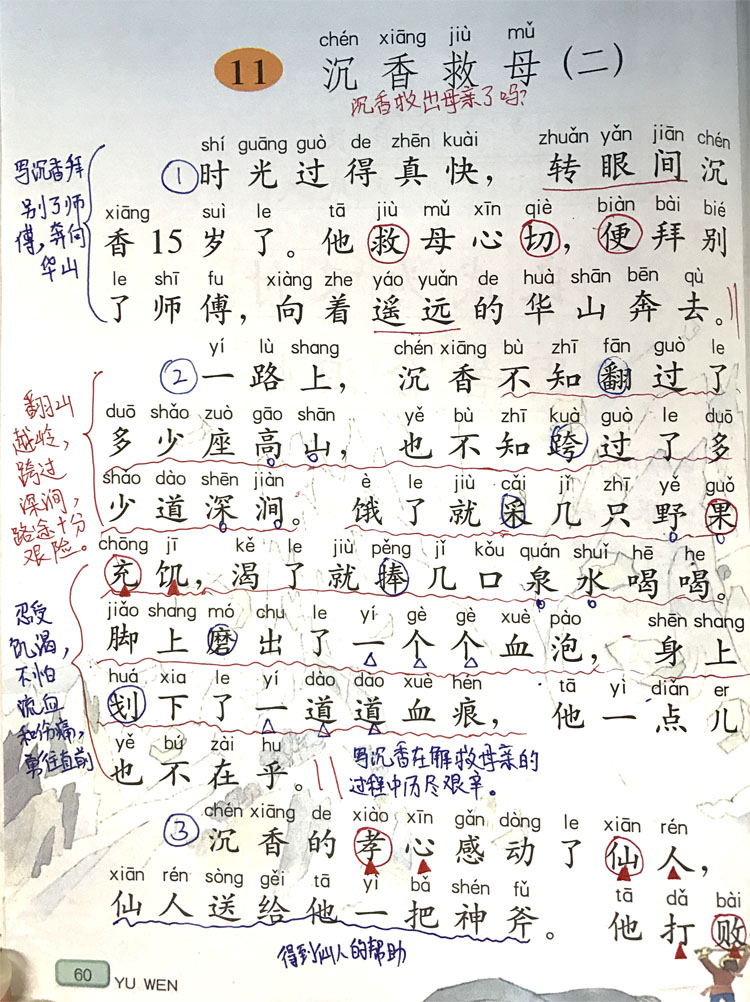 chén xiāng jiù mǔ
11 沉香救母(二)
沉香救出母亲了吗?
shí guāng guò de zhēn kuài zhuǎn yǎn jiān chén
①时光过得真快，转眼间沉
xiāng suì le tā jiù mǔ xīn qiè biàn bài bié
香15岁了。他救母心切，便拜别
le shī fu xiàng zhe yáo yuǎn de huà shān bēn qù
了师傅，向着遥远的华山奔去。
写沉香拜
别了师
傅，奔向
华山
yí lù shang chén xiāng bù zhī fān guò le
②一路上，沉香不知翻过了
duō shǎo zuò gāo shān yě bù zhī kuà guò le duō
多少座高山，也不知跨过了多
shǎo dào shēn jiàn è le jiù cǎi jǐ zhī yě guǒ
少道深涧。饿了就采几只野果
chōng jī kě le jiù pěng jǐ kǒu quán shuǐ hē he
充饥，渴了就捧几口泉水喝喝。
jiǎo shang mó chu le yí gè gè xuè pào shēn shang
脚上磨出了一个个血泡，身上
huá xia le yí dào dào xuè hén tā yì diǎn er
划下了一道道血痕，他一点儿
yě bú zài hu
也不在乎。
翻山
越岭，
跨过
深涧，
路途十分
艰险。
忍受
饥渴，
不怕
流血
和伤痛，
勇往直前
写沉香在解救母亲的
过程中历尽艰辛。
chén xiāng de xiào xīn gǎn dòng le xiān rén
③沉香的孝心感动了仙人，
xiān rén sòng gěi tā yì bǎ shén fǔ tā dǎ bài
仙人送给他一把神斧。他打败
得到仙人的帮助
60 YU WEN